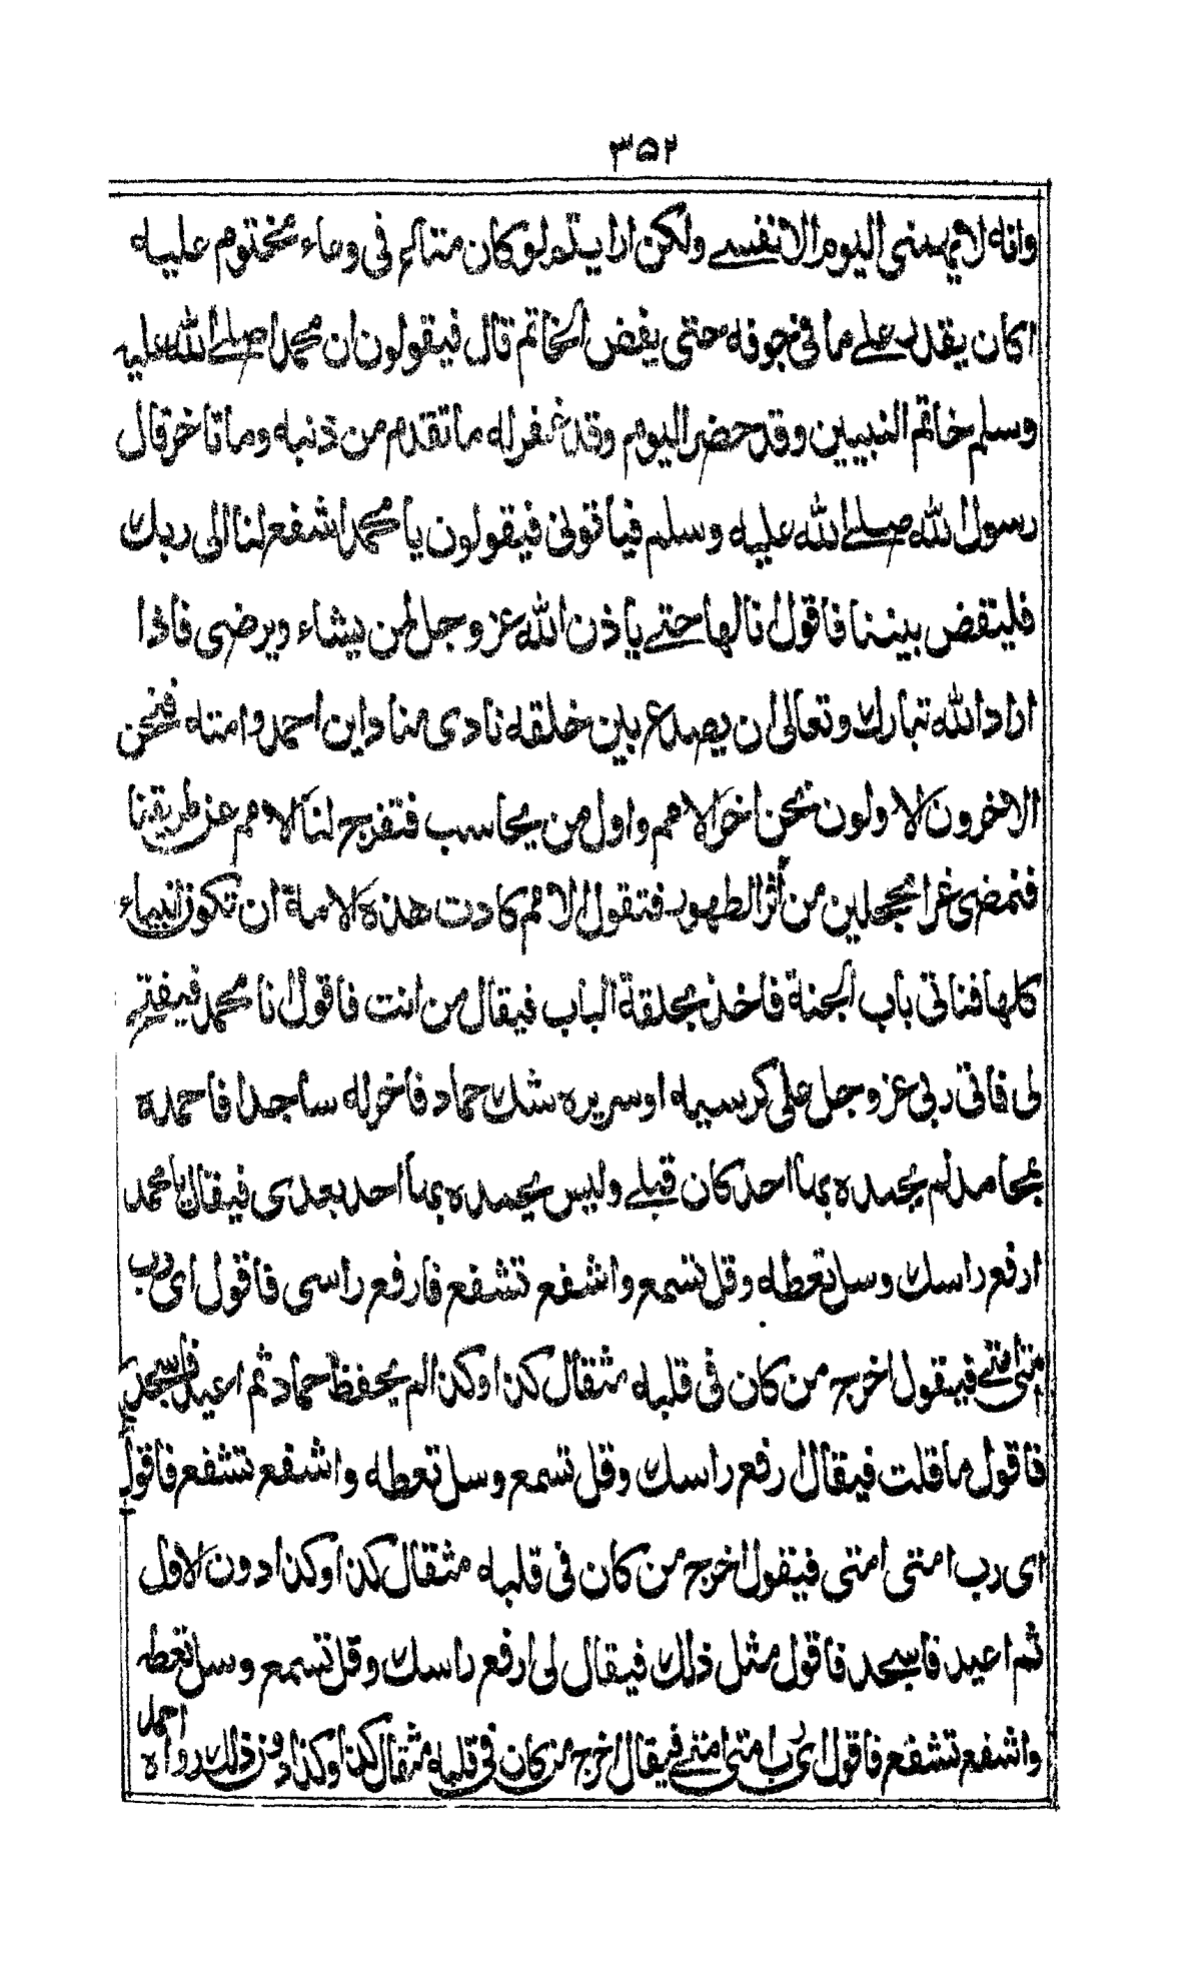 ٣٥٢
وانه لا يهمنى اليوم الا نفسے ولكن ارايتم لو كان متاع فى وعاء مختوم عليه
اكان يقدر علے ما فى جوفه حتى يفض الخاتم قال فيقولون ان محمدا صلے الله عليه
وسلم خاتم النبيين وقد حضر اليوم وقد غفر له ما تقدم من ذنبه وما تاخر قال
رسول الله صلے الله عليه وسلم فياتونى فيقولون يا محمد اشفع لنا الى ربك
فليقض بيننا فاقول انا لها حتے ياذن الله عز وجل لمن يشاء ويرضى فاذا
اراد الله تبارك وتعالى ان يصدع بين خلقه نادى مناد اين احمد وامته فنحن
الاخرون الاولون نحن اخر الامم واول من يحاسب فتفرج لنا الامم عن طريقنا
فنمضى غرا محجلين من أثر الطهور فتقول الامم كادت هذه الامة ان تكون انبياء
كلها فناتى باب الجنة فاخذ بحلقة الباب فيقال من انت فاقول انا محمد فيفتح
لى فاتى ربى عز وجل على كرسيه او سريره شك حماد فاخر له ساجدا فاحمده
بمحامد لم يحمده بها احد كان قبلے وليس يحمده بها احد بعدى فيقال يا محمد
ارفع راسك وسل تعطه وقل تسمع واشفع تشفع فارفع راسى فاقول اى رب
امتى امتے فيقول اخرج من كان فى قلبه مثقال كذا وكذا لم يحفظ حماد ثم اعيد فاسجد
فاقول ما قلت فيقال ارفع راسك وقل تسمع وسل تعطه واشفع تشفع فاقول
اى رب امتى امتى فيقول اخرج من كان فى قلبه مثقال كذا وكذا دون الاول
ثم اعيد فاسجد فاقول مثل ذلك فيقال لى ارفع راسك وقل تسمع وسل تعطه
واشفع تشفع فاقول اى رب امتى امتے فيقال اخرج من كان فى قلبه مثقال كذا وكذا دون ذلك رواه احمد